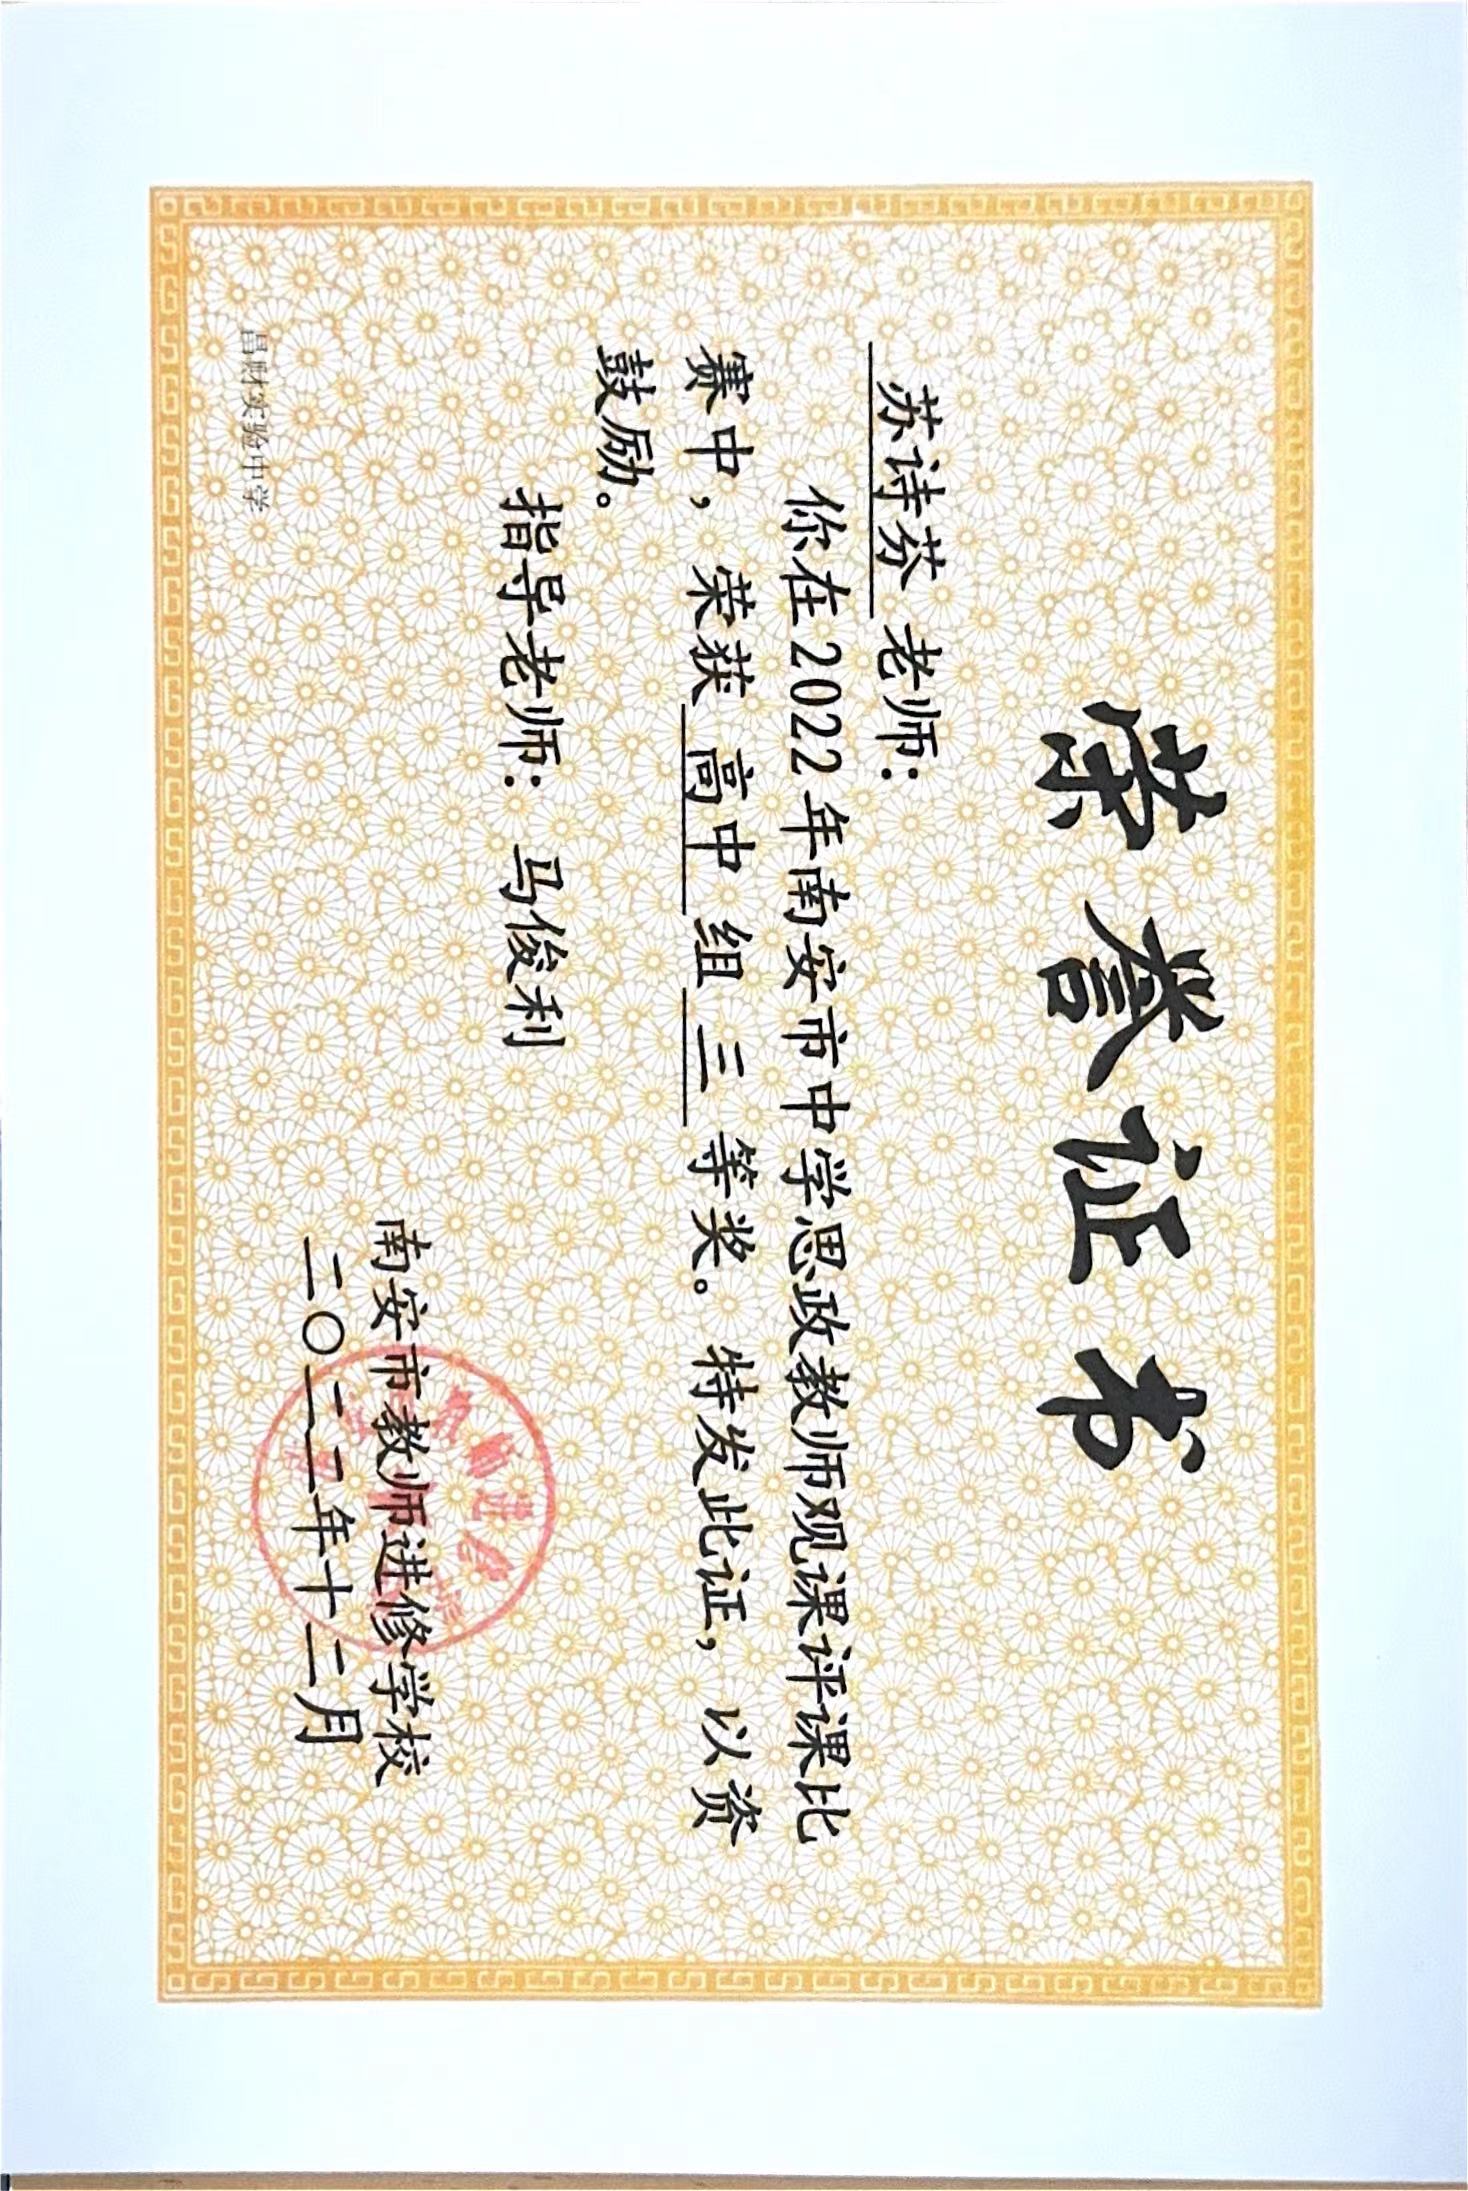 荣誉证书
苏诗芬 老师:
你在2022年南安市中学思政教师观课评课比
赛中，荣获 高中 组 三 等奖。特发此证，以资
鼓励。
指导老师: 马俊利
南安市教师进修学校
二〇二二年十二月
昌财实验中学